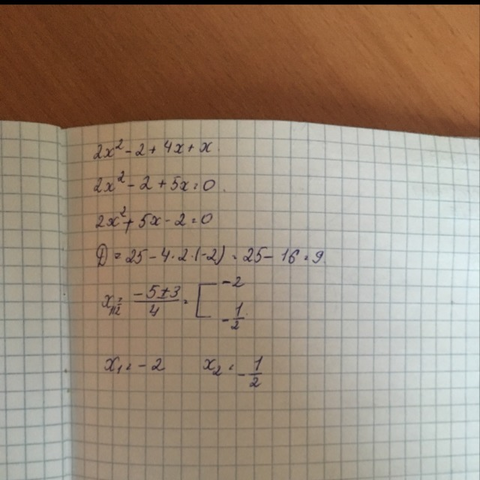 2x² - 2 + 4x + x
2x² - 2 + 5x = 0
2x² + 5x - 2 = 0
D = 25 - 4 · 2 · (-2) = 25 - 16 = 9
x₁,₂ = (-5 ± 3)/4 = [ -2
-1/2
x₁ = -2 x₂ = -1/2